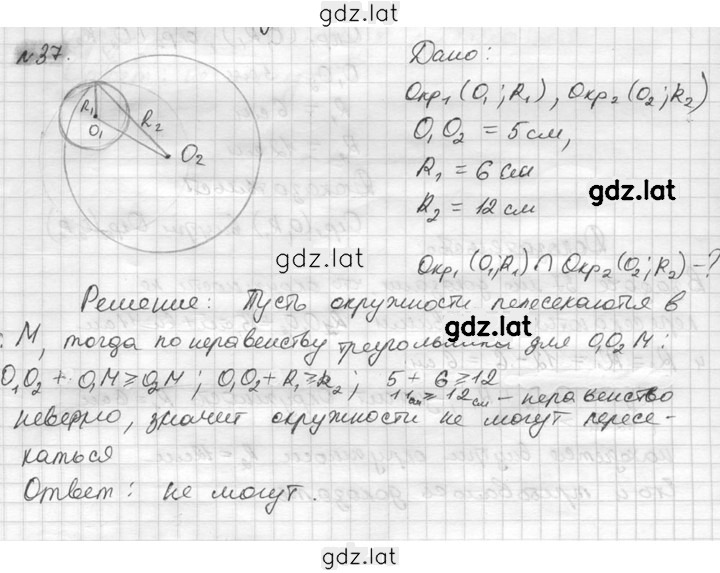 gdz.lat
№37.
R₁
O₁
R₂
O₂
Дано:
Окр₁(O₁;R₁), Окр₂(O₂;R₂)
O₁O₂ = 5см,
R₁ = 6 см
gdz.lat
R₂ = 12 см
gdz.lat
Окр₁(O₁;R₁) ∩ Окр₂(O₂;R₂) - ?
Решение: Пусть окружности пересекаются в
gdz.lat
М, тогда по неравенству треугольника для O₁O₂M:
O₁O₂ + O₁M ⩾ O₂M; O₁O₂ + R₁ ⩾ R₂; 5 + 6 ⩾ 12
11см ⩾ 12см – неравенство
неверно, значит окружности не могут пересе-
каться
Ответ: не могут.
gdz.lat